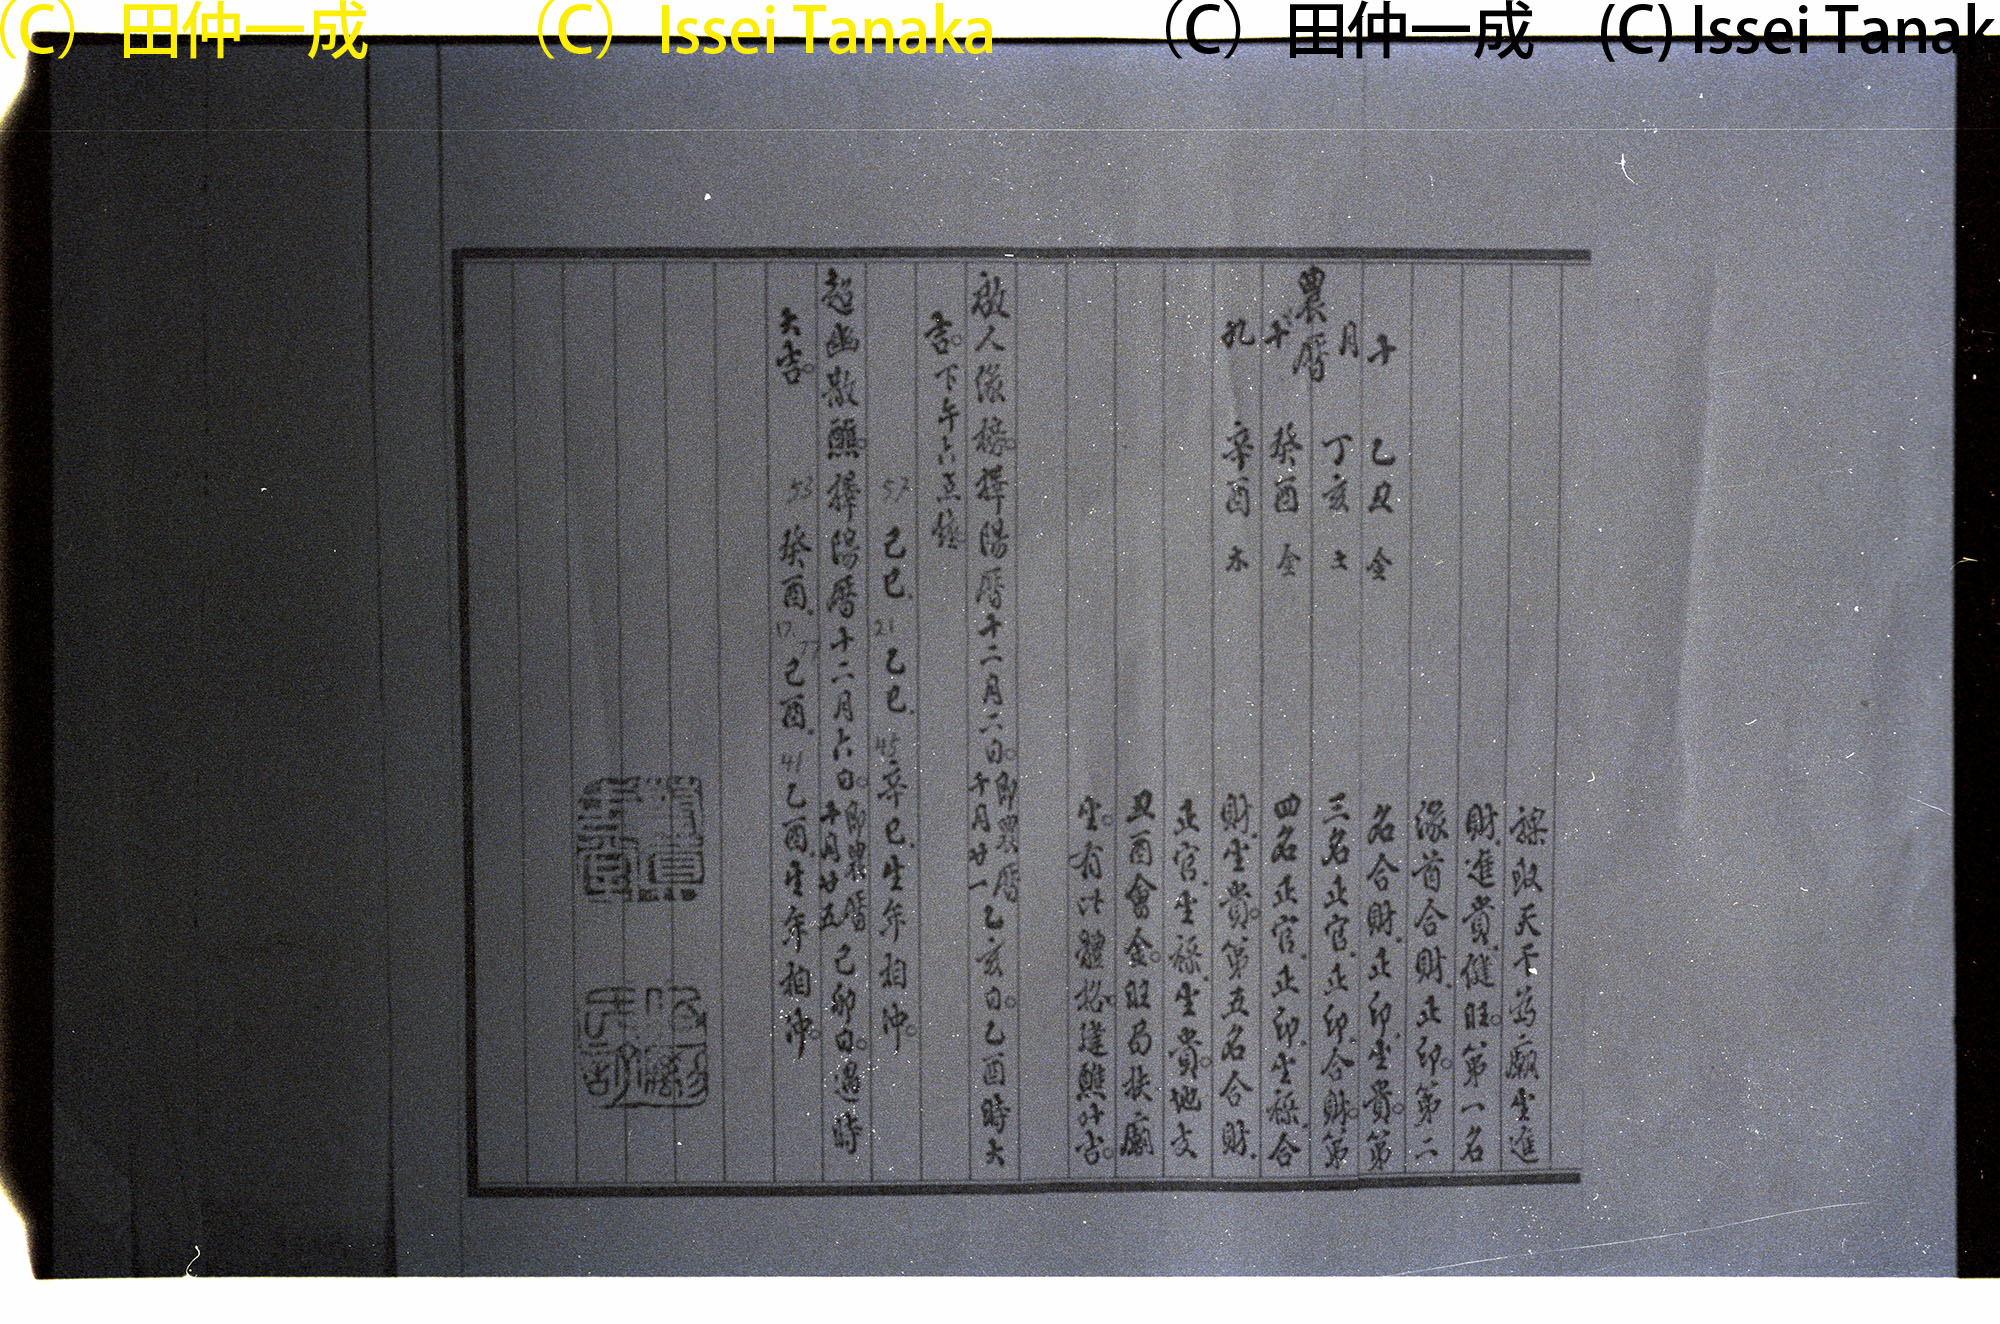 (C) 田仲一成 (C) Issei Tanaka (C) 田仲一成 (C) Issei Tanak
天干為廟坐進
財。進貴。健旺。第一名
緣首合財。正印。第二
名合財。正印。坐貴。第
三名正官。正印。合財。第
四名正官。正印。坐祿。合
財。坐貴。第五名合財。
正官。坐祿。坐貴。地支
丑酉會金。旺局扶廟
坐。有此體格。建醮叶吉。
農曆
十月十九
乙丑 金
丁亥 土
癸酉 金
辛酉 木
啟人緣榜。擇陽曆十二月二日。即農曆十月廿一乙亥日。乙酉時大
吉。下午六点鐘
57 己巳。21 乙巳。45 辛巳。生年相沖。
超幽散醮。擇陽曆十二月六日。即農曆十月廿五己卯日。過時
大吉。
53 癸酉。17 77 己酉。41 乙酉。生年相沖。